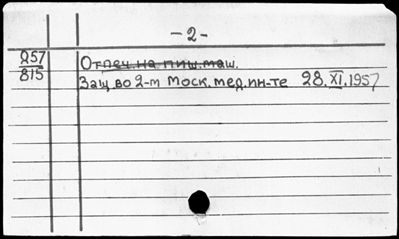 - 2 -
257
815
Отпеч. на пиш. маш.
Защ. во 2-м Моск. мед. ин-те 28.XI.1957